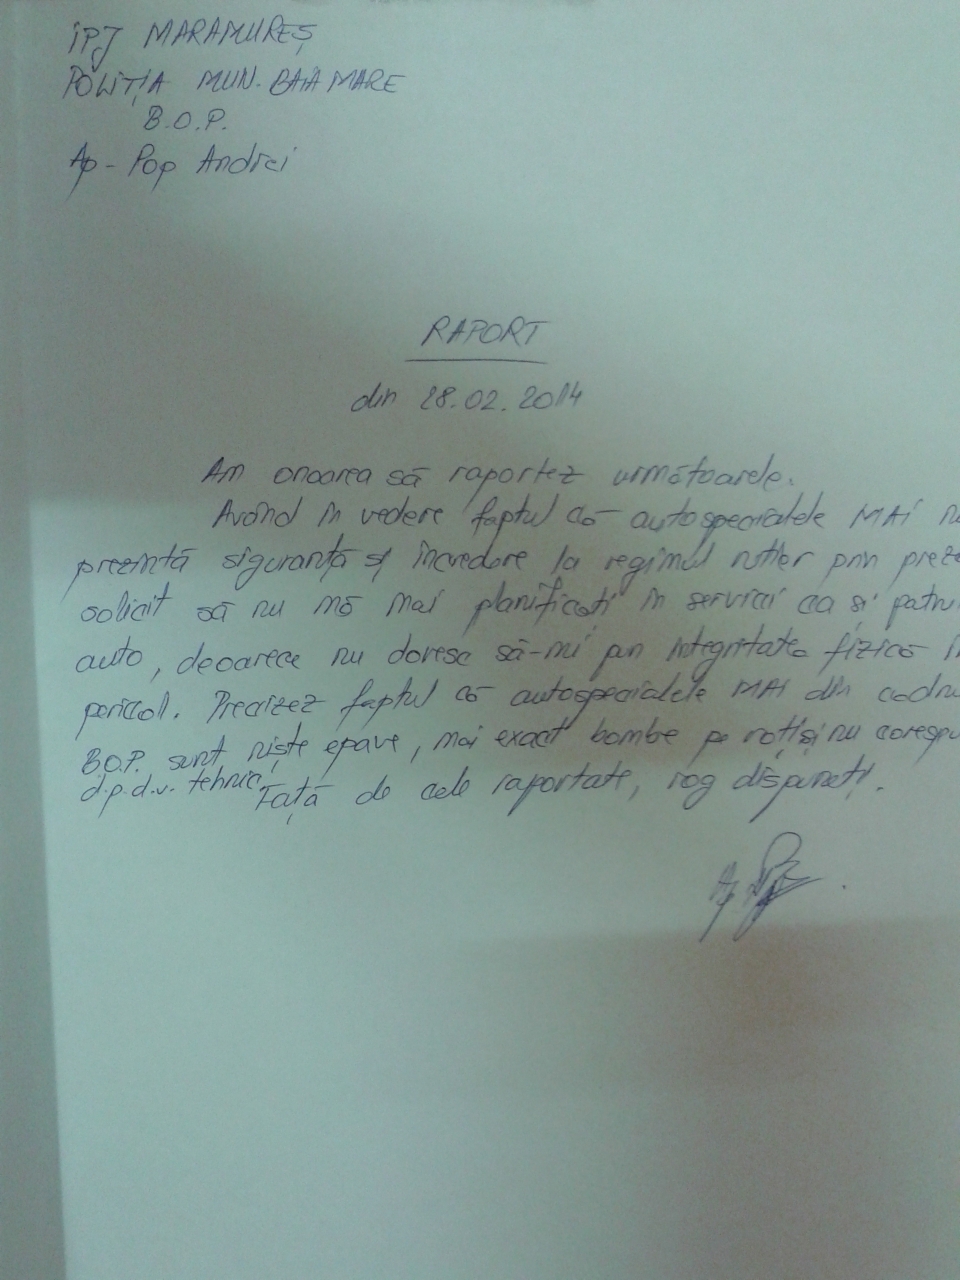 IPJ MARAMUREȘ
POLIȚIA MUN. BAIA MARE
B.O.P.
Ap - Pop Andrei
RAPORT
din 28.02.2014
Am onoarea să raportez următoarele.
Având în vedere faptul că autospecialele MAI nu
prezintă siguranță și încredere la regimul rutier prin preze
solicit să nu mă mai planificați în servicii ca și patru
auto, deoarece nu doresc să-mi pun integritatea fizică în
pericol. Precizez faptul că autospecialele MAI din cadru
B.O.P. sunt niște epave, mai exact bombe pe roți și nu corespu
d.p.d.v. tehnic.
Față de cele raportate, rog dispuneți.